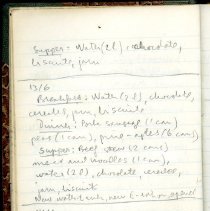 Supper: Water (2 l) chocolate,
biscuits, jam
13/6
Breakfast: Water (2 l), chocolate,
cereales, jam, biscuits
Dinner: Pork sausage (1 can)
peas (1 can), pine-apples (6 cans)
Supper: Beef stew (2 cans)
meat and noodles (1 can),
water (2 l), chocolate, cereales,
jam, biscuits
New